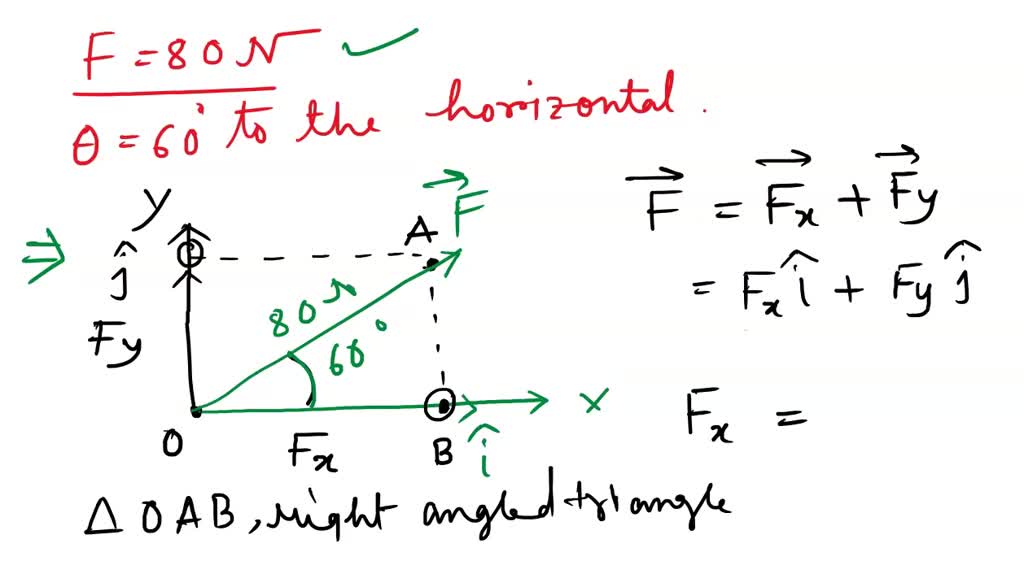 F = 80 N ✓
θ = 60° to the horizontal.
y
⇒ ĵ
Fy
A
F⃗
80 N
60°
O
Fx
B
î
x
F⃗ = F⃗x + F⃗y
= Fx î + Fy ĵ
Fx =
Δ OAB, right angled triangle